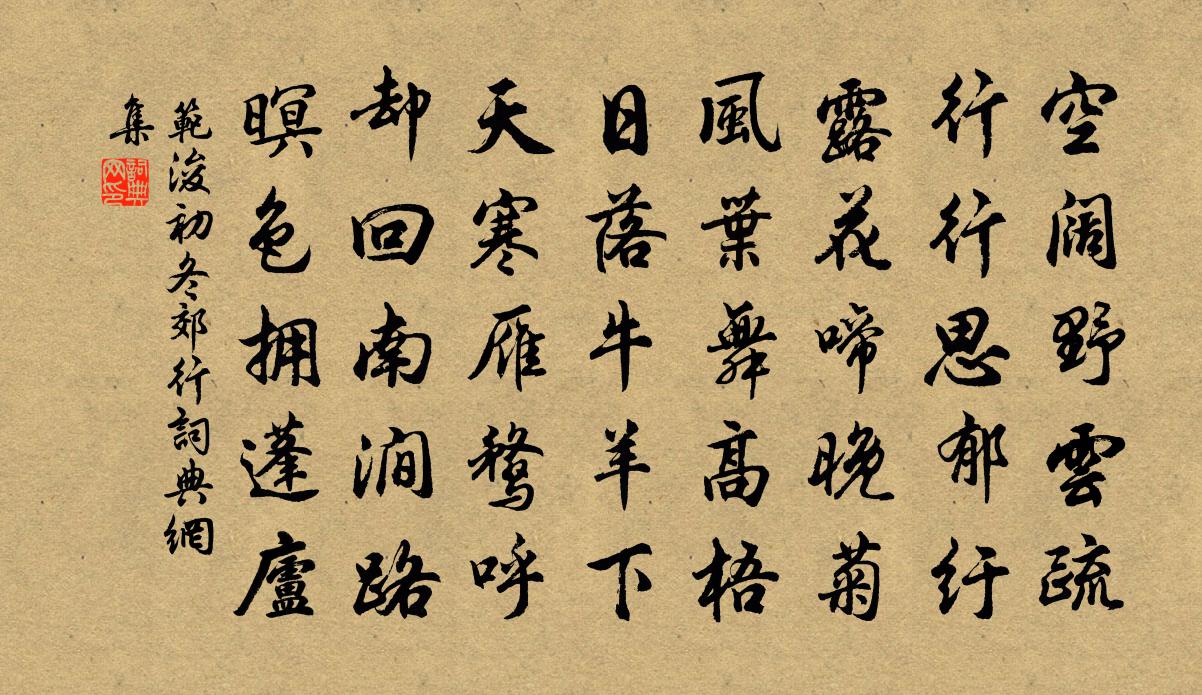 空闊野雲疏
行行思郁纡
露花啼晚菊
風葉舞高梧
日落牛羊下
天寒雁鶩呼
却回南澗路
暝色拥蓬廬
範浚初冬郊行詞典網
集
詞典网印